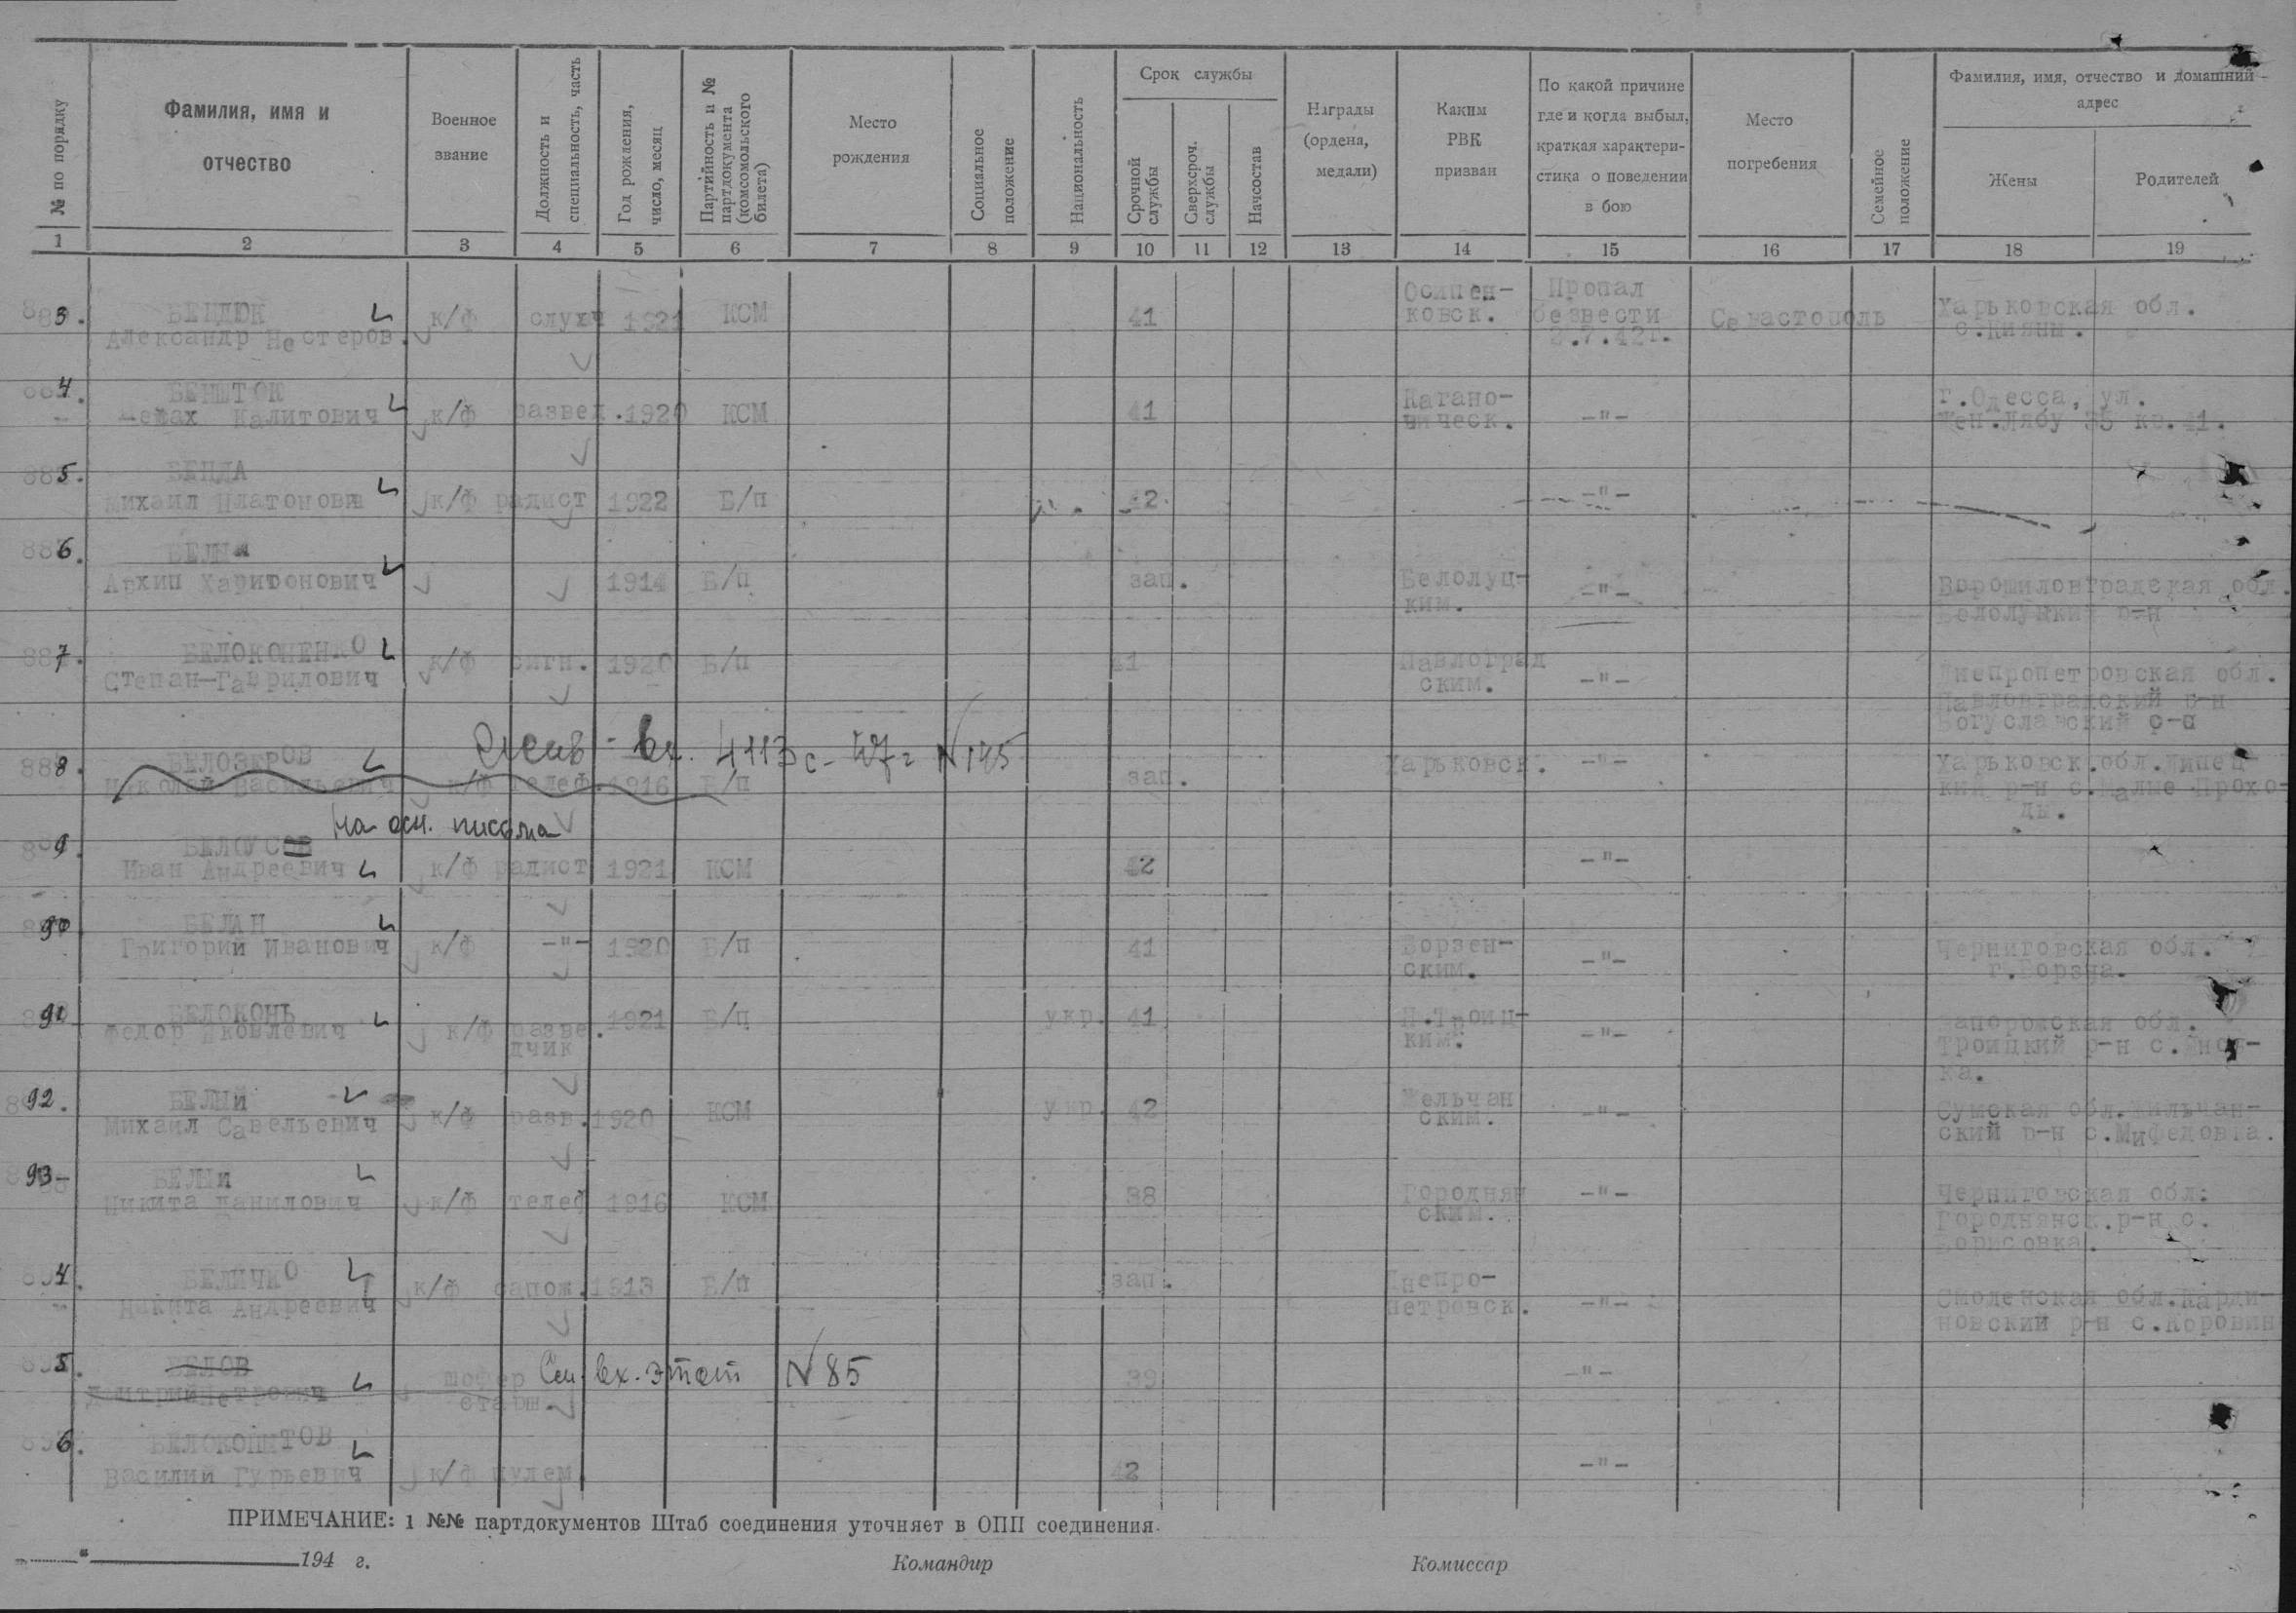 № по порядку
Фамилия, имя и
отчество
Военное
звание
Должность и
специальность, часть
Год рождения,
число, месяц
Партийность и №
партдокумента
(комсомольского
билета)
Место
рождения
Социальное
положение
Национальность
Срок службы
Срочной
службы
Сверхсроч.
службы
Начсостав
Награды
(ордена,
медали)
Каким
РВК
призван
По какой причине
где и когда выбыл,
краткая характери-
стика о поведении
в бою
Место
погребения
Семейное
положение
Фамилия, имя, отчество и домашний
адрес
Жены
Родителей
1 2 3 4 5 6 7 8 9 10 11 12 13 14 15 16 17 18 19
883. БЕНДЮК Осипен- Пропал Харьковская обл.
Александр Нестеров. к/ф слухч 1921 КСМ 41 ковск. безвести Севастополь
2.7.42г.
884. БЕНШТОК Кагано- г.Одесса, ул.
Калитович к/ф развед. 1920 КСМ 41 вическ. -"- кв.41.
885. БЕНДА
Михаил Платонович к/ф радист 1922 Б/п 42 -"-
886.
Архип Харитонович 1914 Б/п зап. Белолуц- -"- Ворошиловградская обл.
ким. Белолуцкий р-н
887. БЕЛОКОНЕНКО
Степан Гаврилович к/ф сигн. 1920 Б/п 41 Павлоград -"- Днепропетровская обл.
ским. Павловградский р-н
Богуславский с-с
888. БЕЛОЗЕРОВ вх. 4113с-47г N 145
Николай Васильевич к/ф телеф. 1916 Б/п зап. Харьковск. -"- Харьковск.обл.Липец-
кий р-н с.Малые Прохо-
ды.
На осн. письма
889. БЕЛОУСОВ
Иван Андреевич к/ф радист 1921 КСМ 42 -"-
890. БЕЛАН
Григорий Иванович к/ф -"- 1920 Б/п 41 Борзен- -"- Черниговская обл.
ским. г.Борзна.
891. БЕЛОКОНЬ
Федор Яковлевич к/ф разве 1921 Б/п укр. 41 Н.Троиц- -"- Запорожская обл.
дчик ким. Троицкий р-н с.
ка.
892. БЕЛЫЙ
Михаил Савельевич к/ф разв. 1920 КСМ укр. 42 -"- Сумская обл.
ским. ский р-н
893. БЕЛЫЙ
Никита Данилович к/ф телеф 1916 КСМ 38 Городнян -"- Черниговская обл.
ским. Городнянск.р-н с.
Борисовка.
894. БЕЛИЧКО
Никита Андреевич к/ф сапож. 1913 Б/п зап. Днепро- -"- Смоленская обл.Карди-
петровск. новский р-н с.Коровин
895. БЕЛОВ
Дмитрий Петрович шофер См. вх. этот N 85 39 -"-
старш.
896. БЕЛОКОПЫТОВ
Василий Гурьевич к/ф пулем. 42 -"-
ПРИМЕЧАНИЕ: 1 №№ партдокументов Штаб соединения уточняет в ОПП соединения.
194 г. Командир Комиссар